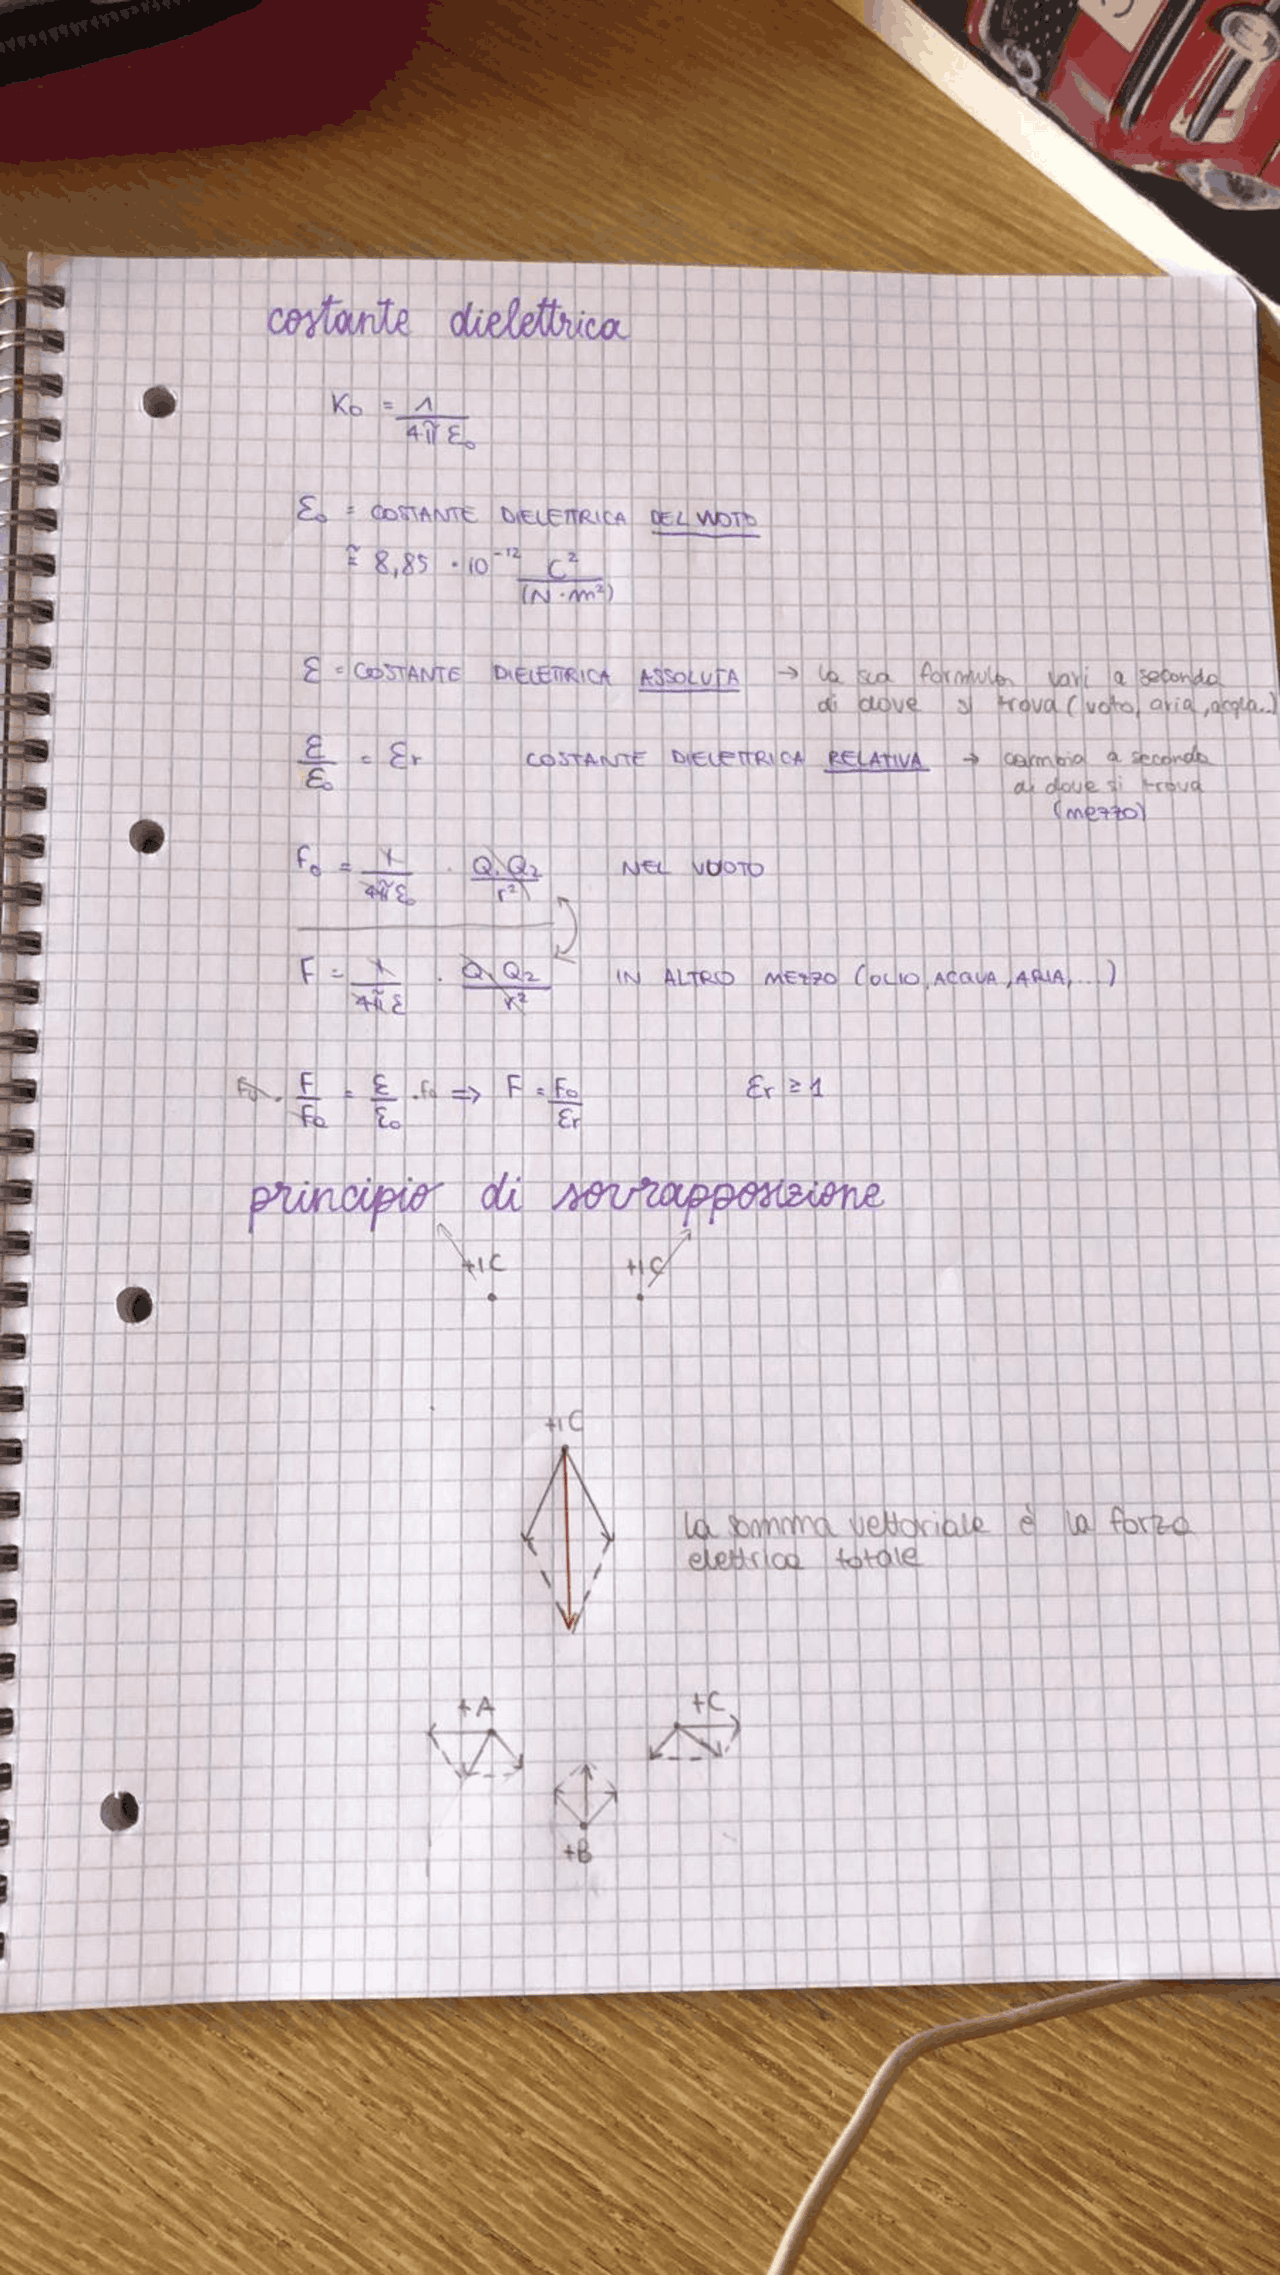 costante dielettrica
K₀ = 1/(4π ε₀)
ε₀ = COSTANTE DIELETTRICA DEL VUOTO
≅ 8,85 · 10⁻¹² C²/(N·m²)
ε = COSTANTE DIELETTRICA ASSOLUTA → la sua formula vari a seconda
di dove si trova (vuoto, aria, acqua..)
ε/ε₀ = εr COSTANTE DIELETTRICA RELATIVA → cambia a seconda
di dove si trova
(mezzo)
F₀ = 1/(4π ε₀) · Q₁Q₂/r² NEL VUOTO
F = 1/(4π ε) · Q₁Q₂/r² IN ALTRO MEZZO (OLIO, ACQUA, ARIA,...)
F₀ · F/F₀ = ε/ε₀ · F₀ ⇒ F = F₀/εr εr ≥ 1
principio di sovrapposizione
+1C +1C
+1C
la somma vettoriale è la forza
elettrica totale
+A +C
+B